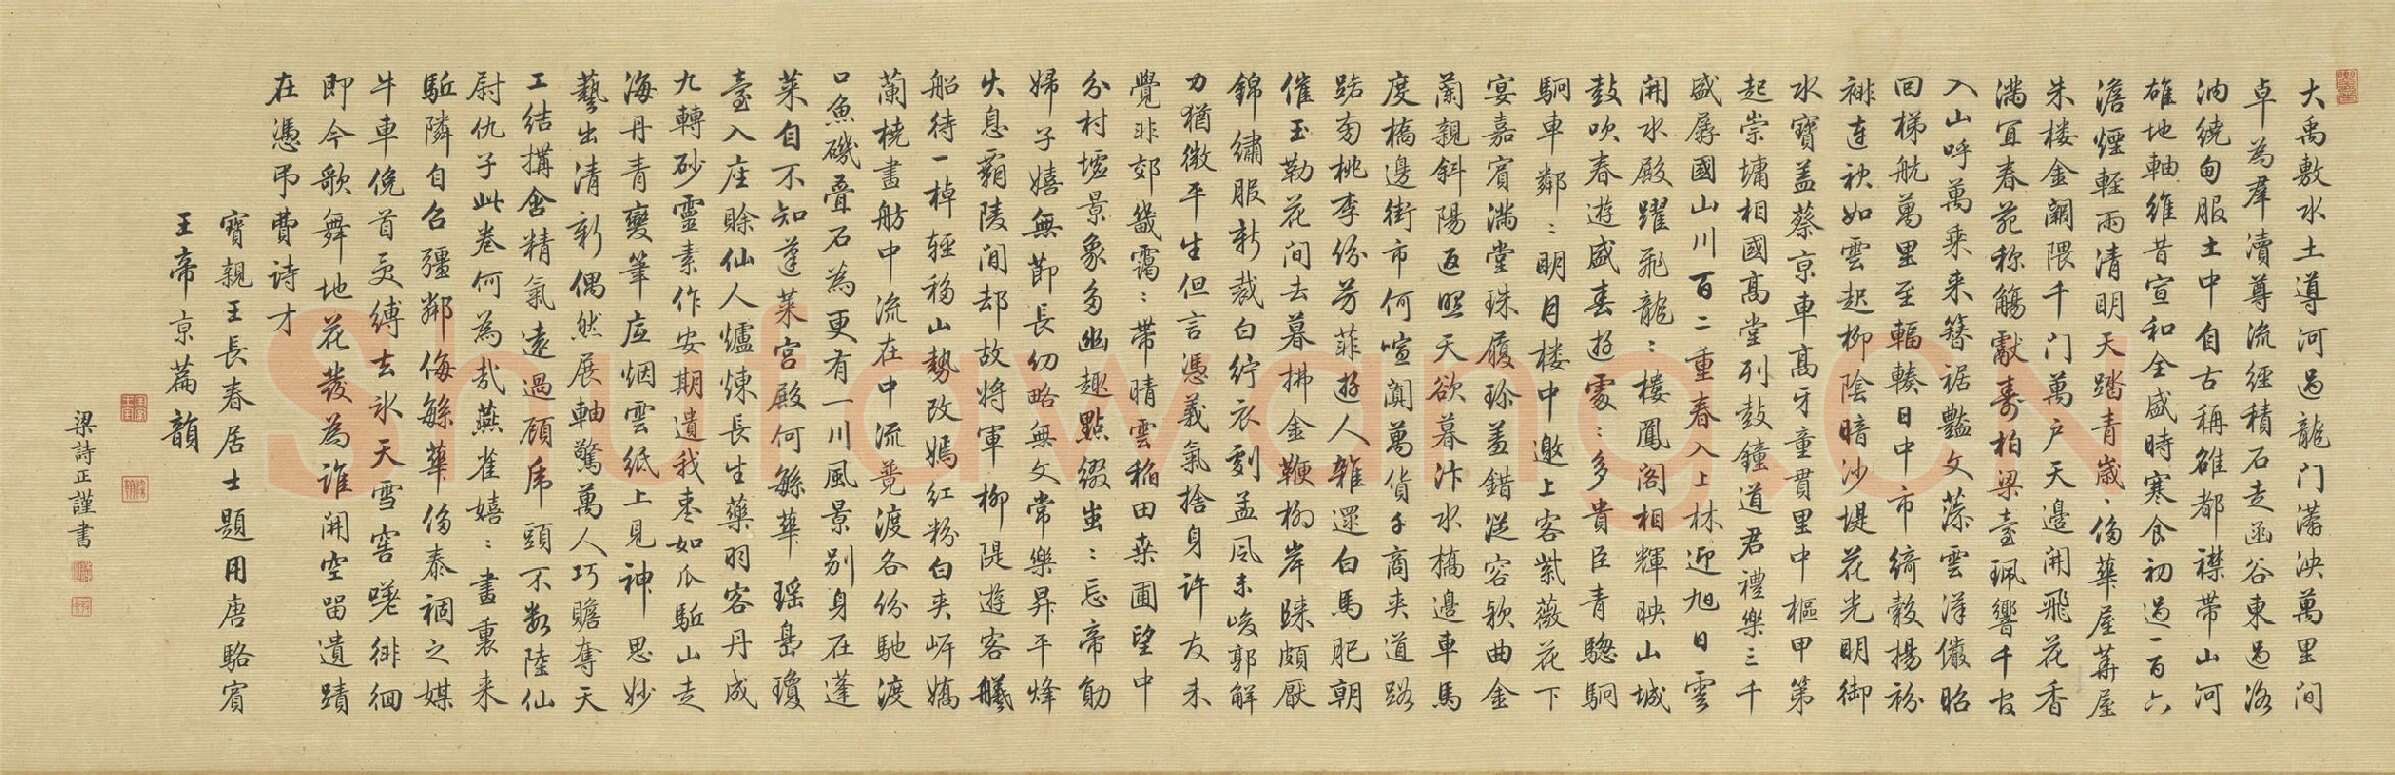 大禹敷水土導河過龍门瀟泱萬里间
卓為羣瀆尊流經積石走函谷東過洛
汭繞甸服土中自古稱雄都襟帶山河
雄地軸維昔宣和全盛時寒食初過一百六
澹煙輕雨清明天踏青歲〻侈華屋華屋
朱楼金闕隈千门萬户天邊開飛花香
滿宜春苑称觴獻壽柏梁臺珮響千官
入山呼萬乘来簪裾豔文藻雲漢儼昭
回梯航萬里至輻輳日中市綺縠揚衯
褂連袂如雲起柳陰暗沙堤花光明御
水寶盖蔡京車高牙童貫里中樞甲第
起崇墉相國高堂列鼓鐘道君禮樂三千
盛孱國山川百二重春入上林迎旭日雲
開水殿躍飛龍〻樓鳳阁相輝映山城
鼓吹春遊盛春遊處〻多貴臣青驄駟
駟車鄰〻明月楼中邀上客紫薇花下
宴嘉賓滿堂珠履珍羞錯從容欵曲金
蘭親斜陽返照天欲暮汴水橋邊車馬
度橋邊街市何喧闐萬貨千商夾道路
路旁桃李份芳菲遊人雜還白馬肥朝
催玉勒花间去暮拂金鞭柳岸歸頗厭
錦繡服新裁白紵衣劇孟風未竣郭解
刀猶微平生但言憑義氣捨身许友未
覺非郊畿靄〻帶晴雲稲田桒圃望中
分村墟景象多幽趣點綴蚩〻忘帝勛
婦子嬉無節長幼略無文常樂昇平烽
火息覇陵间却故將軍柳隄遊客艤
船待一棹輕移山勢改嫣紅粉白夾岍嬌
蘭橈畫舫中流在中流競渡各份馳渡
口魚磯疊石為更有一川風景别身在蓬
莱自不知蓬莱宫殿何緐華瑶島瓊
臺入座賖仙人爐煉長生藥羽客丹成
九轉砂靈素作安期遺我枣如瓜駈山走
海丹青變筆底烟雲纸上見神思妙
藝出清新偶然展軸驚萬人巧贍奪天
工结搆含精氣遠過顧虎頭不数陸仙
尉仇子此卷何為哉燕雀嬉〻畫裏来
駈隣自召彊鄰侮緐華侈泰禍之媒
牛車俛首受縛去氷天雪窖嗟徘徊
即今歌舞地花發為誰開空留遺蹟
在憑弔費诗才
寶親王長春居士題用唐駱賓
王帝京篇韻
梁詩正謹書
Shufawang.cn